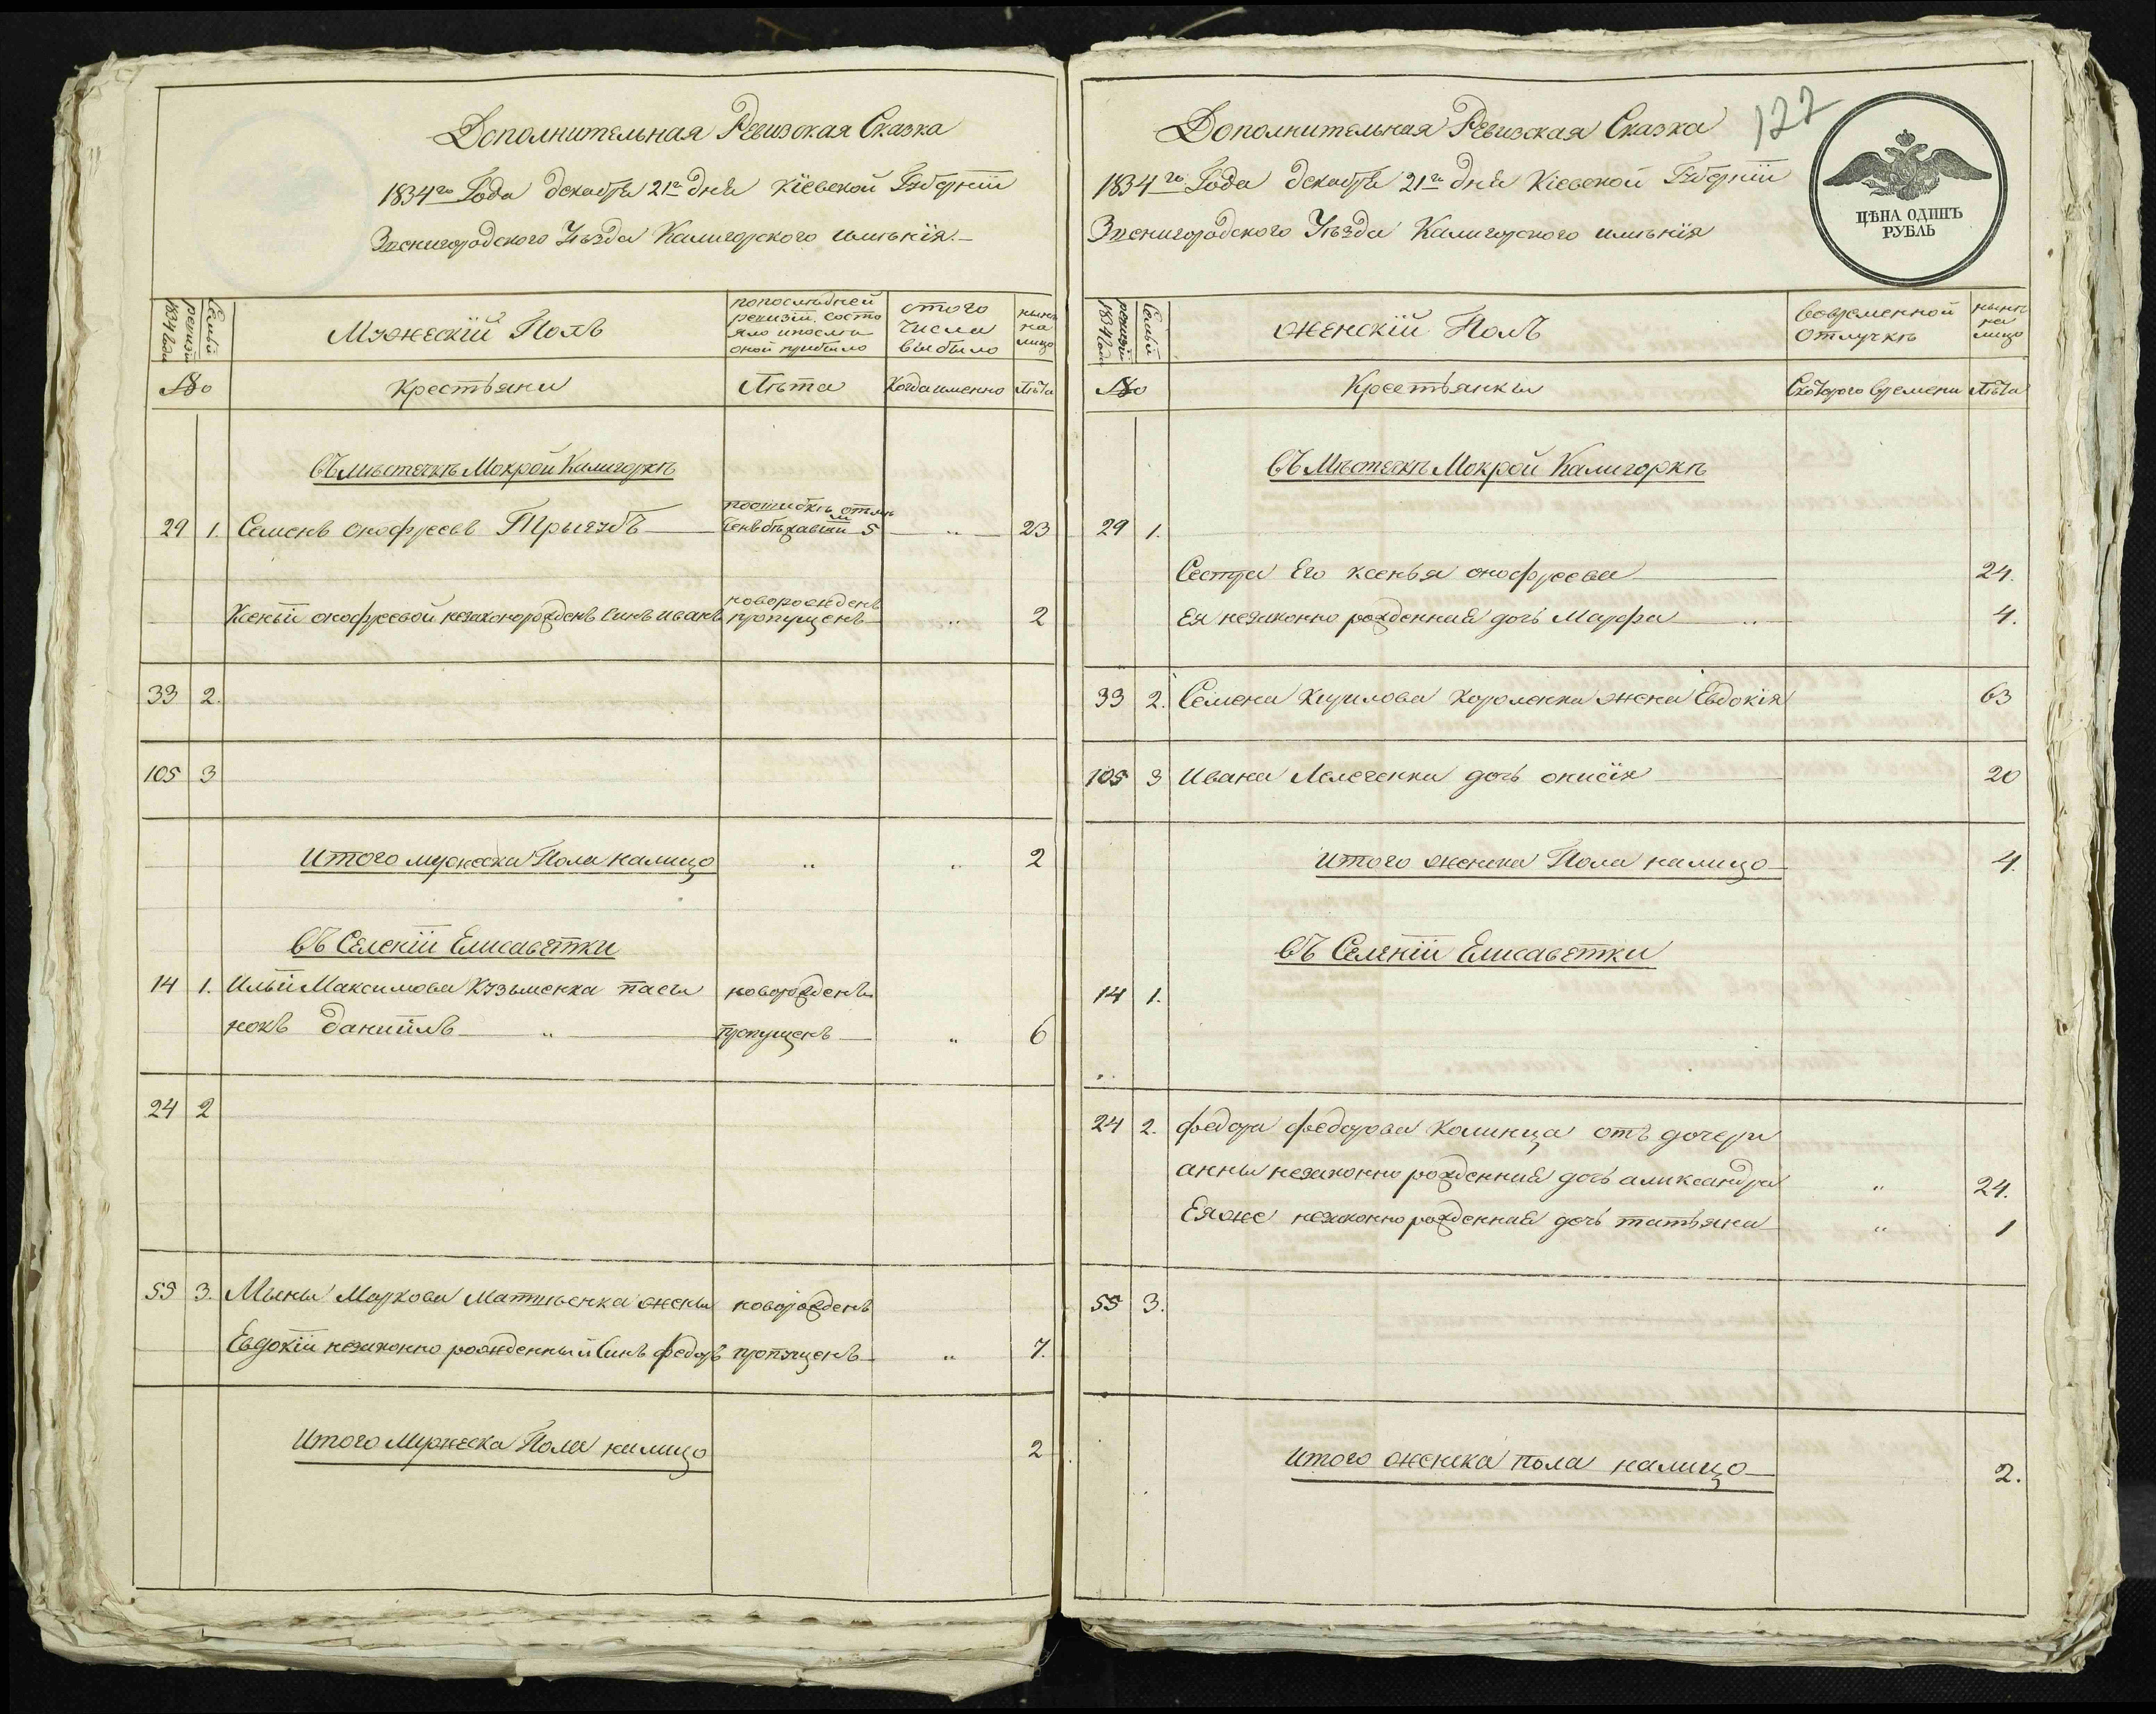 Дополнительная Ревизская Сказка
1834го Года декабря 21го дня Кіевской Губерніи
Звенигородского Уѣзда Калигорского имѣнія
ревизіи 1834 года
Семьи
Мужескій Полъ
попослѣдней
ревизіи состо
яло ипосля
оной прибыло
стого
числа
выбыло
нынѣ
на
лицо
№
Крестьяни
Лѣта
Когда именно
Лѣта
Въ мѣстечкѣ Мокрой Калигоркѣ
29 1. Семенъ Онофреевъ Тригубъ 5 „ 23
Ксеніи Онофреевой незаконорожденъ Синъ Иванъ
новорожденъ
пропущенъ „ 2
33 2.
105 3
Итого мужеска Пола налицо „ „ 2
Въ Селеніи Елисаветки
14 1. Ильи Максимова Кузьменка пасы новорожденъ
нокъ Даніилъ „ пропущенъ „ 6
24 2
55 3. Мыны Маркова Матвѣенка жены новорожденъ
Евдокіи незаконно рожденный Синъ Федоръ пропущенъ „ 7.
Итого Мужеска Пола налицо 2
Дополнительная Ревизская Сказка
122
1834го Года декабря 21го дня Кіевской Губерніи
Звенигородского Уѣзда Калигорского имѣнія
ЦѢНА ОДИНЪ
РУБЛЬ
ревизіи 1834 года
Семьи
женскій Полъ
Вовременной
отлучкѣ
нынѣ
на
лицо
№
Крестьянки
Скоторого времени
Лѣта
Въ Мѣстечкѣ Мокрой Калигоркѣ
29 1.
Сестра Его Ксенья Онофреева 24.
Ея незаконно рожденная дочь Марфа „ 4.
33 2. Семена Кирилова Короленка жена Евдокія 63
105 3 Ивана дочь 20
Итого женска Пола налицо 4.
Въ Селеніи Елисаветки
14 1.
24 2. Федора Федорова Калинца отъ дочери
анны незаконно рожденная дочь александра „ 24.
Еяже незаконно рожденная дочь татьяна „ 1
55 3.
Итого женска пола налицо 2.